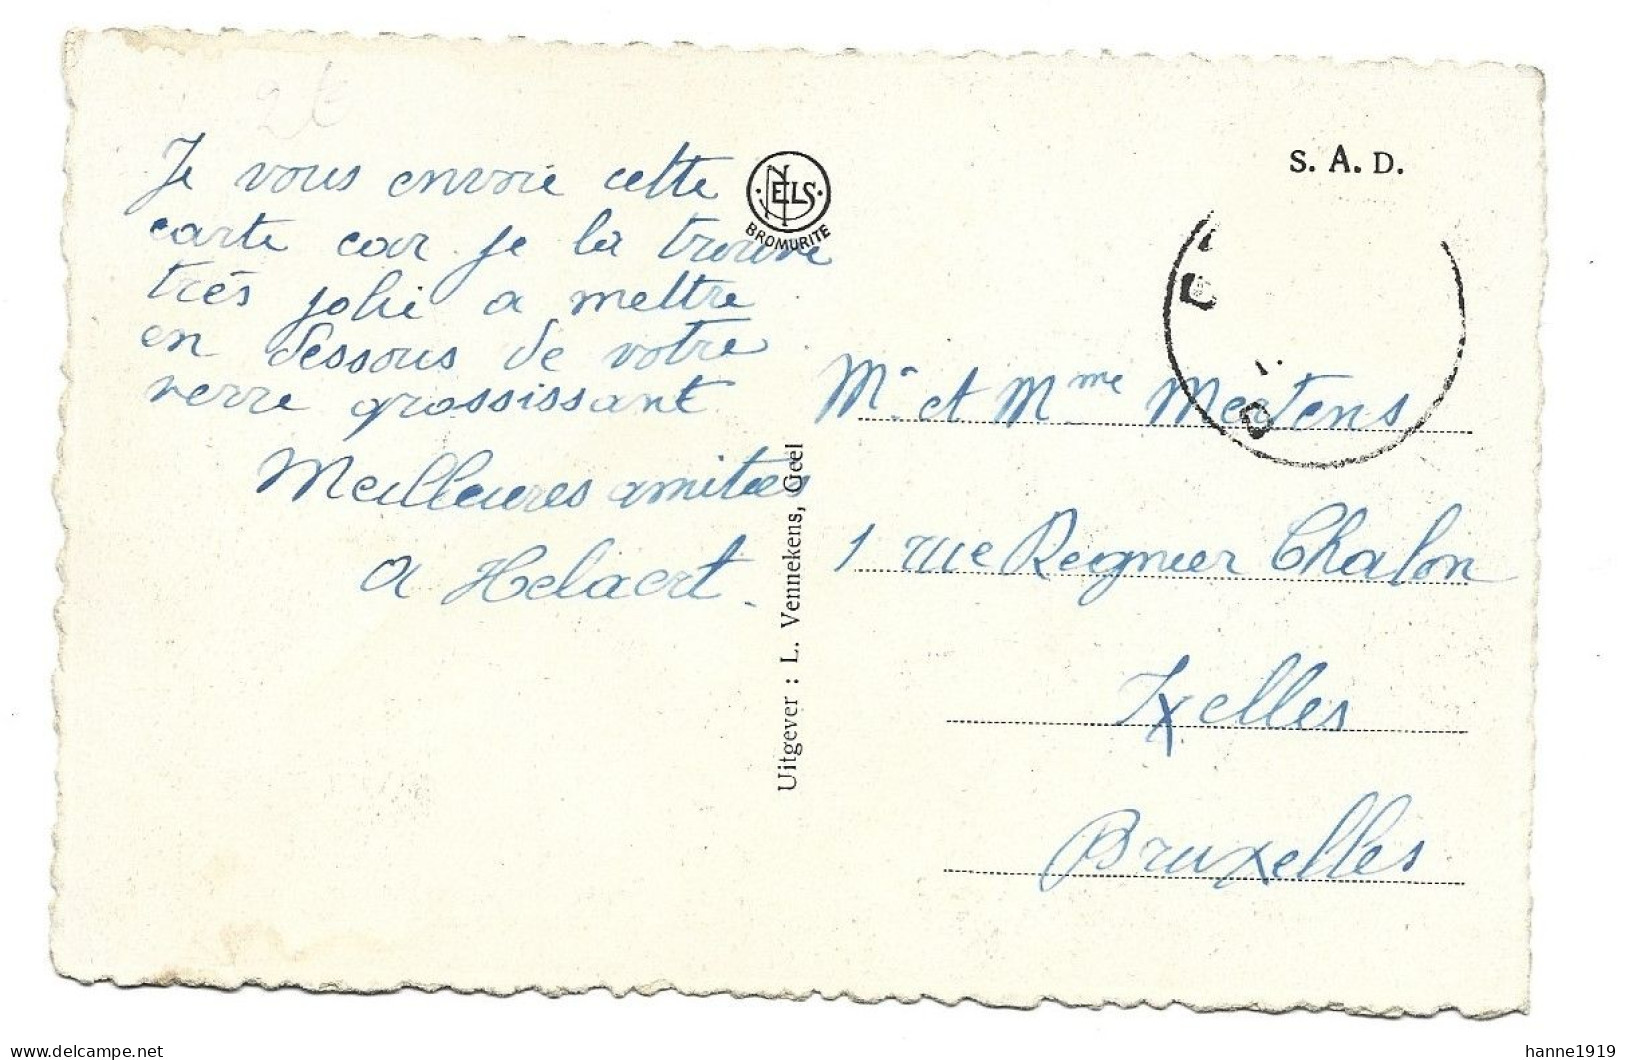 2€
Je vous envoie cette
carte car je la trouve
très jolie a mettre
en dessous de votre
verre grossissant
Meilleures amitiés
A Helaert.
NELS
BROMURITE
Uitgever : L. Vennekens, Geel
S. A. D.
Mr et Mme Mertens
1 rue Regnier Chalon
Ixelles
Bruxelles
hanne1919
delcampe.net